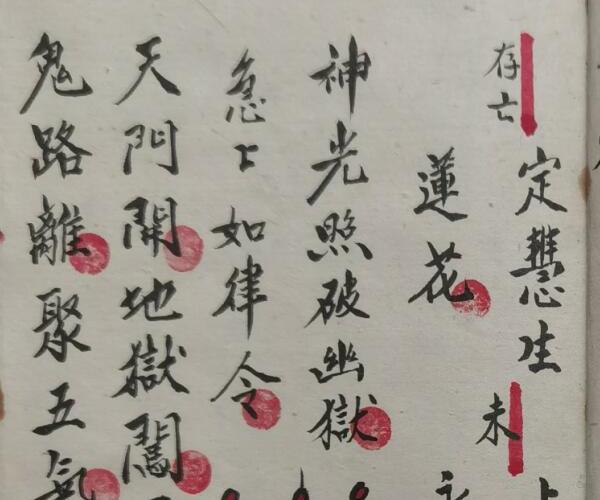 存亡
定慧生
未
蓮花
神光照破幽獄
急々如律令
天門開地獄闖
鬼路離聚五氣